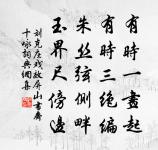 有時一盡起
有時三絕編
朱丝弦側畔
玉界尺傍邊
刘克庄戏效屏山書齋
十咏詞典網集